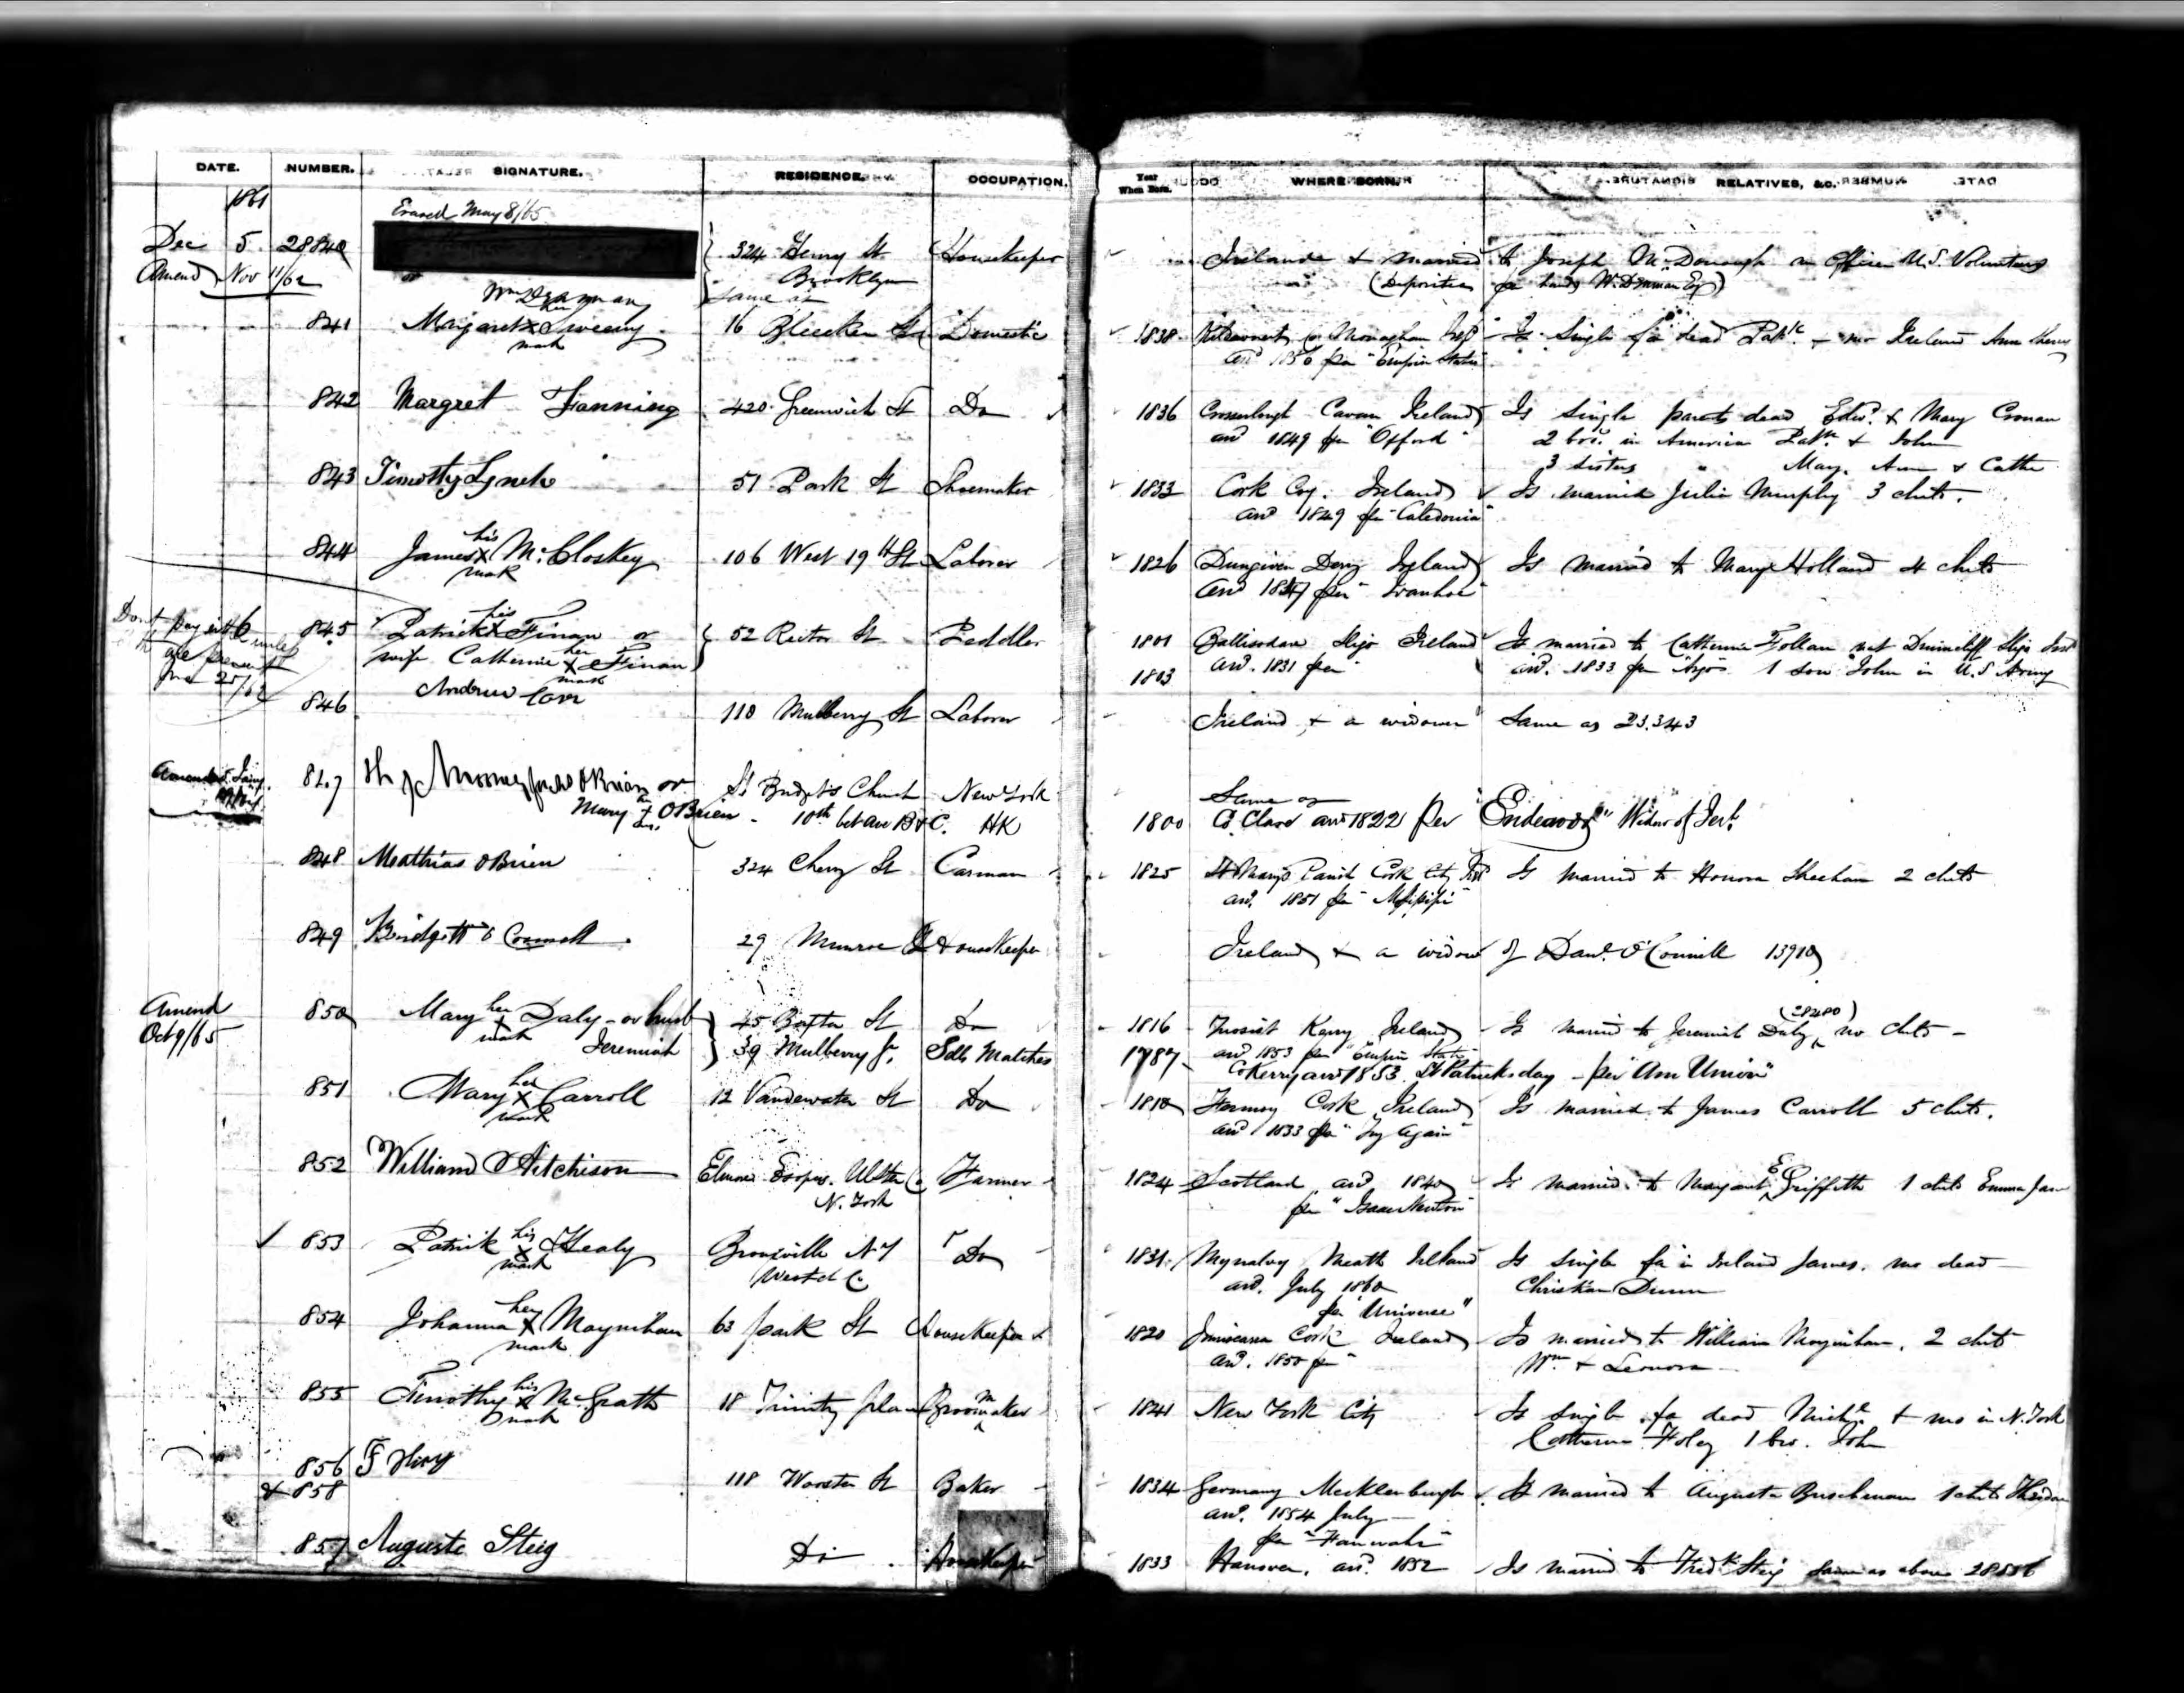 DATE. NUMBER. SIGNATURE. RESIDENCE. OCCUPATION. Year When Born. WHERE BORN. RELATIVES, &c.
1861
Erased May 8/65
Dec 5 28840 324 Henry St Housekeeper Ireland & married to Joseph McDonough an Officer U.S. Volunteers
Amend Nov 11/62 or Brooklyn (Deposited for heads W. Denman Esq)
Wm Denman same as
841 Margaret her x mark Sweeny 16 Bleecker St Domestic 1838 Co Monaghan Irel Is single fa dead Patk & mo Ireland Ann
arrd 1856 per "Empire State"
842 Margret Fanning 420 Greenwich St Do 1836 Crosserlough Cavan Ireland Is single parents dead Edwd & Mary Cronan
arrd 1849 per "Offord" 2 bros. in America Patk & John
3 sisters " Mary, Ann & Cathe
843 Timothy Lynch 51 Park St Shoemaker 1833 Cork Coy. Ireland Is married Julia Murphy 3 chds.
arrd 1849 per "Caledonia"
844 James his x mark McCloskey 106 West 19th St Laborer 1826 Dungiven Derry Ireland Is married to Mary Holland 4 chds
arrd 1847 per "Ivanhoe"
Don't pay 845 Patrick his x Finan or 52 Rector St Peddler 1801 Ballisodare Sligo Ireland Is married to Catherine Follan nat Drumcliff Sligo Ird
wife Catherine her x mark Finan 1803 arrd. 1831 per arrd. 1833 per "Argo" 1 son John in U.S Army
846 Andrew Carr 110 Mulberry St Laborer Ireland & a widower Same as 23.343
847 O'Brien or St Bridgets Church New York Same as
Mary her x O'Brien 10th bet ave B & C. HK 1800 Co Clare arrd 1822 Per "Endeavor" Widow of Jer.
848 Matthias O Brien 324 Cherry St Carman 1825 St Marys Parish Cork City Ird Is married to Honora Sheehan 2 chds
arrd. 1851 per "Missisipi"
849 Bridgett O Connell 29 Munroe St Housekeeper Ireland & a widow of Danl. O'Connell 13910
Amend 850 Mary her x mark Daly - or husb 45 Baxter St Do 1816 Kerry Ireland Is married to Jeremiah Daly (28480) no chds -
Oct 9/65 Jeremiah 39 Mulberry St. Sells Matches 1787 arrd 1853 per "Empire State"
Co Kerry arrd 1853 St Patricks day - per "Am Union"
851 Mary her x mark Carroll 12 Vandewater St Do 1810 Fermoy Cork Ireland Is married to James Carroll 5 chds.
arrd 1833 per "Try Again"
852 William Aitchison Esopus. Ulster Co Farmer 1824 Scotland arrd 1840 Is married to Margaret E Griffith 1 child Emma Jane
N. York per "Isaac Newton"
853 Patrick his x mark Healy Bronxville N Y Do 1831 Mynalvy Meath Ireland Is single fa in Ireland James. mo dead
Westch Co arrd. July 1860 Christian Dunn
per "Universe"
854 Johanna her x mark Moynihan 63 park St Housekeeper 1820 Cork Ireland Is married to William Moynihan, 2 chds
arrd. 1850 per Wm & Leonora
855 Timothy his x mark McGrath 18 Trinity place Broommaker 1841 New York City Is single fa dead Michl & mo in N. York
Catherine Foley 1 bro. John
856 118 Wooster St Baker 1834 Germany Mecklenburgh Is married to Augusta Buschman 1 child
& 858 arrd. 1854 July
857 Auguste Steig Do Housekeeper 1833 Hanover. arrd. 1852 Is married to Fredk Steig same as above 28856